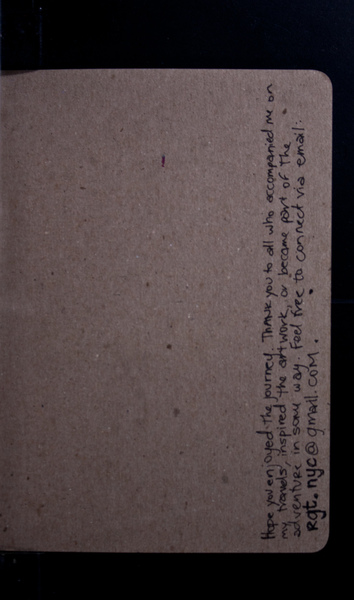 Hope you enjoyed the journey. Thank you to all who accompanied me on
my travels, inspired the artwork, or became part of the
adventure in some way. Feel free to connect via email:
Rgt.nyc@gmail.com.